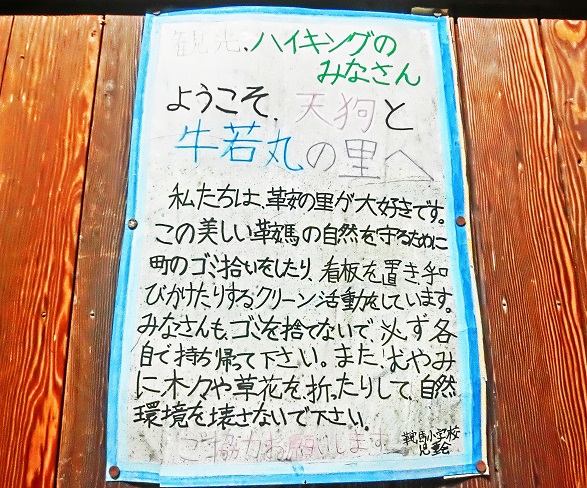 観光、ハイキングの
みなさん
ようこそ、天狗と
牛若丸の里へ
私たちは、鞍馬の里が大好きです。
この美しい鞍馬の自然を守るために
町のゴミ拾いをしたり、看板を置き、呼
びかけたりするクリーン活動をしています。
みなさんも、ゴミを捨てないで、必ず各
自で持ち帰って下さい。また、むやみ
に木々や草花を、折ったりして、自然
環境を壊さないで下さい。
ご協力お願いします
鞍馬小学校
児童会